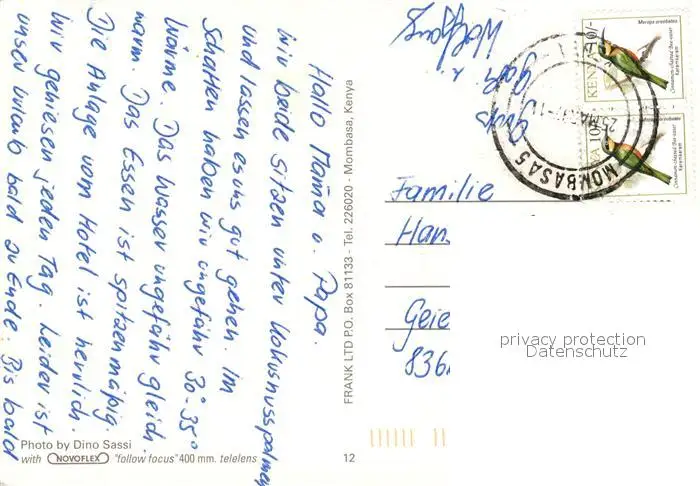 Hallo Mama u. Papa.
Wir beide sitzen unter Kokusnusspalmen
und lassen es uns gut gehen. Im
Schatten haben wir ungefähr 30°-35°
Wärme. Das Wasser ungefähr gleich
warm. Das Essen ist spitzenmäßig.
Die Anlage vom Hotel ist herrlich.
Wir geniesen jeden Tag. Leider ist
unser Urlaub bald zu Ende. Bis bald
Gruß
Gabi u.
Wolfgang
FRANK LTD P.O. Box 81133 - Tel. 226020 - Mombasa, Kenya
Photo by Dino Sassi
with NOVOFLEX "follow focus" 400 mm. telelens
12
KENYA 10/-
Merops oreobates
Cinnamon-chested Bee-eater
10/-
Cinnamon-chested Bee-eater
MOMBASA
Familie
Han
Geie
836
privacy protection
Datenschutz